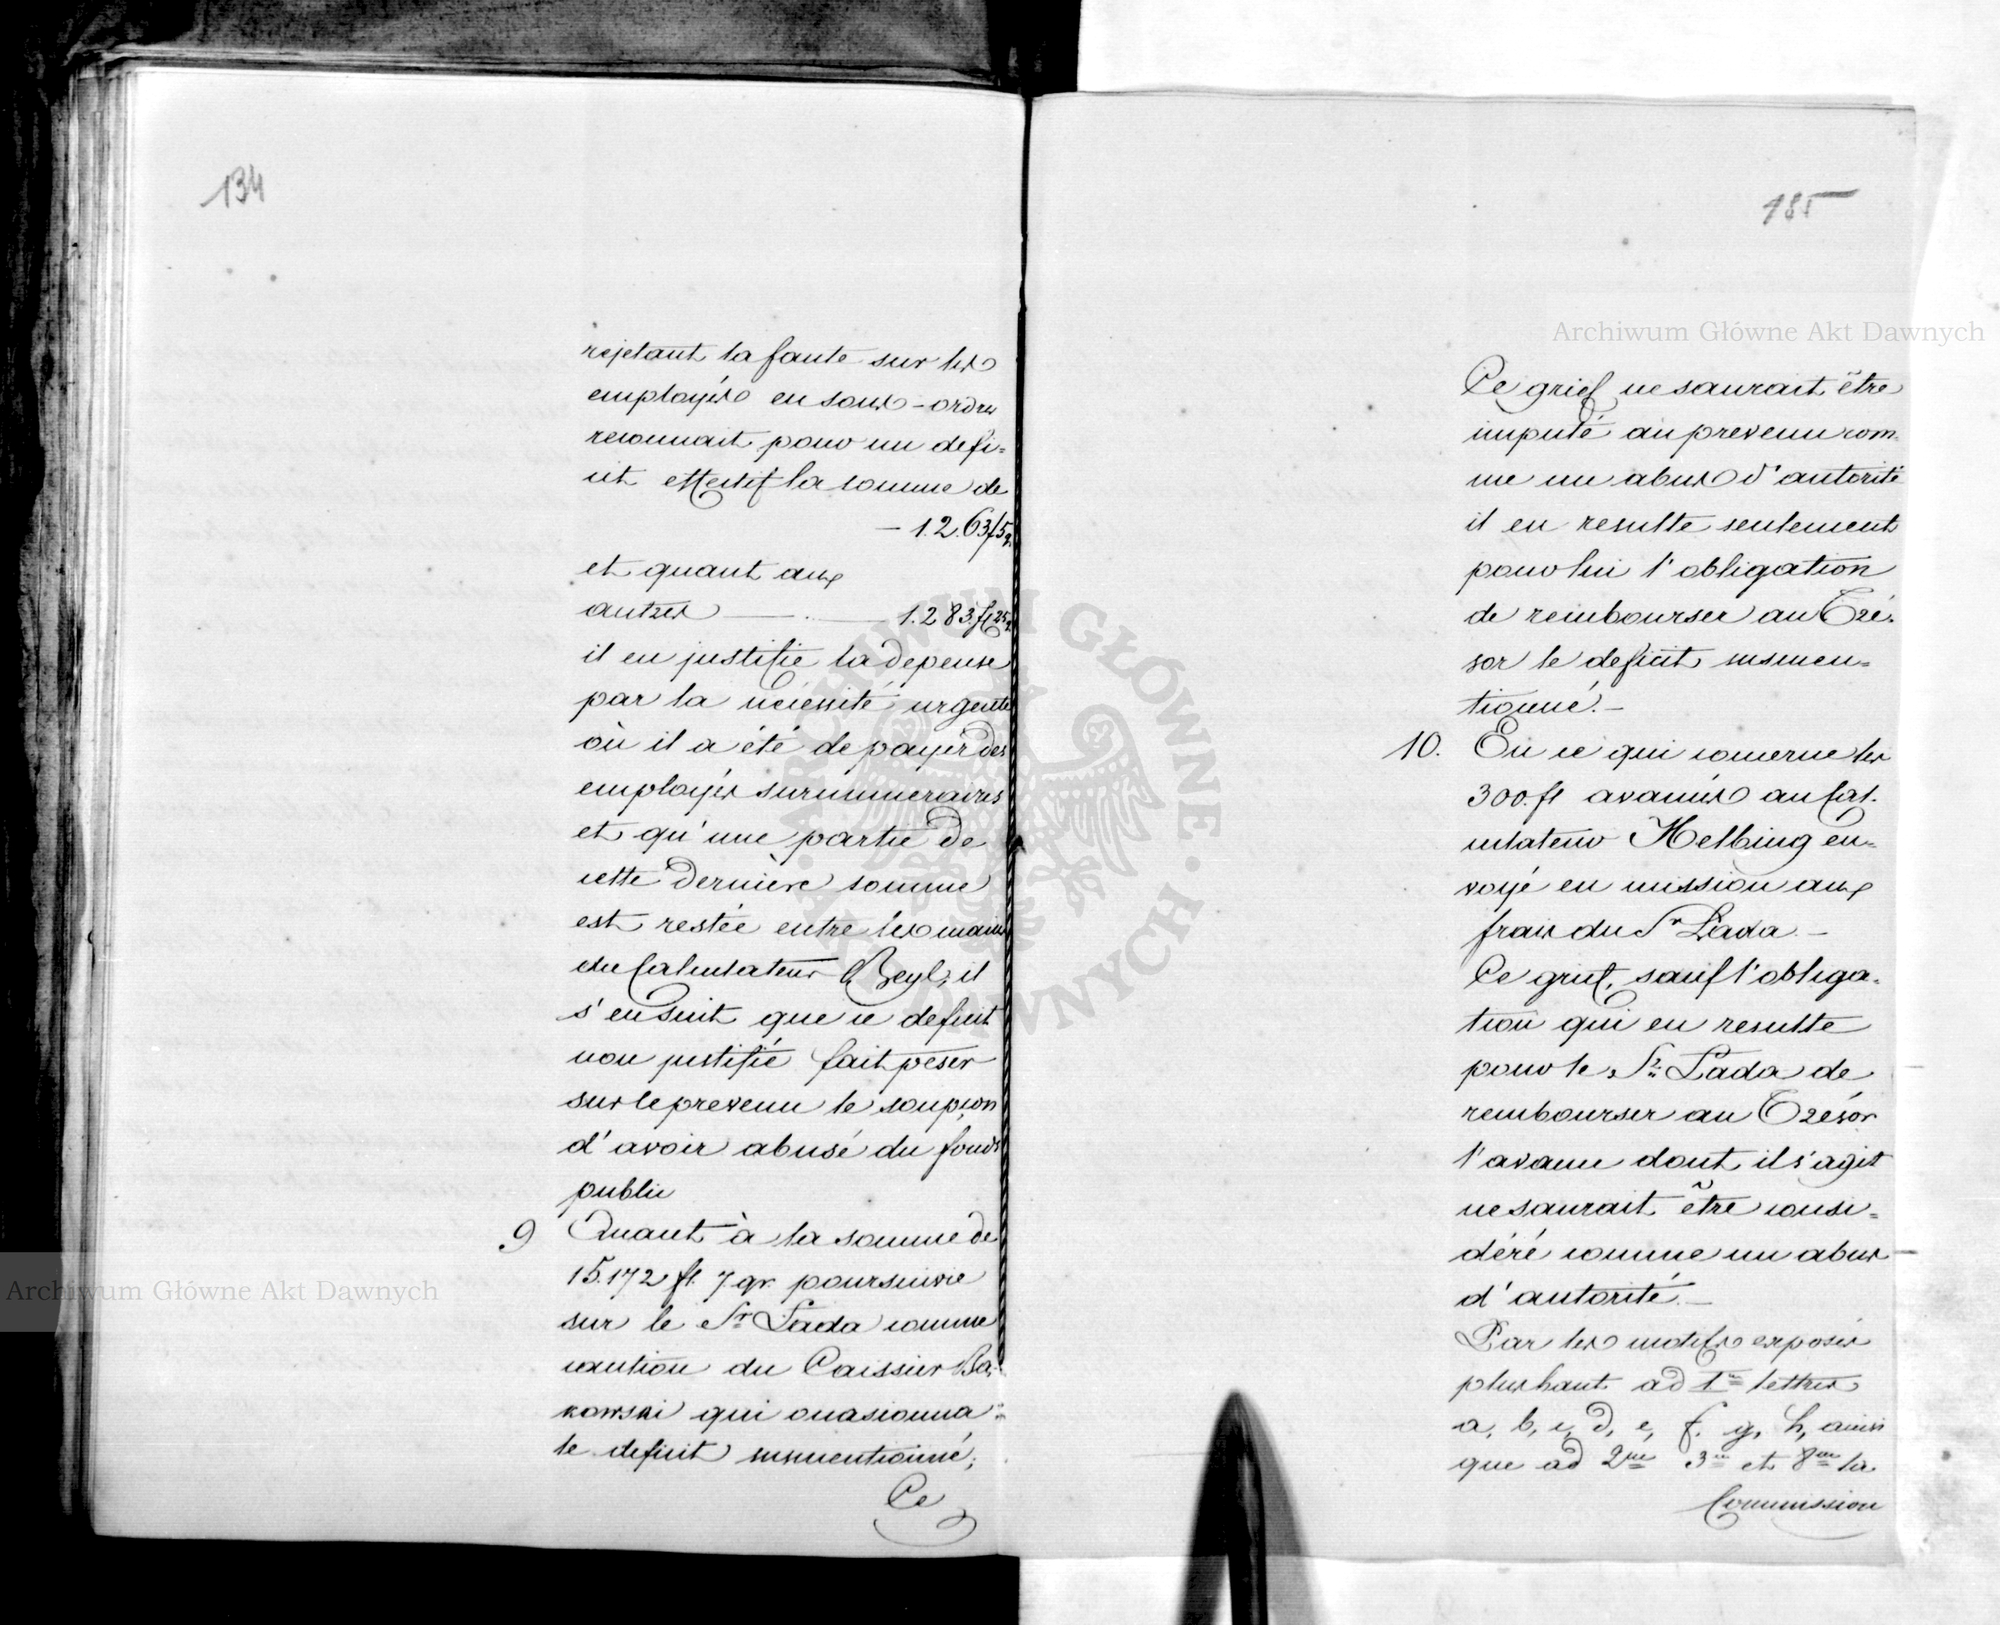 134
rejetant la faute sur les
employés en sous-ordre
reconnait pour un défi=
cit effectif la somme de
— 1.263 f 5 g.
et quant aux
autres — . — 1.283. fl 25 g.
il en justifie la depense
par la nécessité urgente
où il a été de payer des
employés surnumeraires
et qu'une partie de
cette dernière somme
est restée entre les mains
du Calculateur Beyl, il
s'en suit que ce deficit
non justifié fait peser
sur le prevenu le soupçon
d'avoir abusé du fonds
public
9 Quant à la somme de
15.172 fl. 7 gr. poursuivie
sur le Sr Lada comme
caution du Caissier Ba-
kowski qui occasionna
le deficit susmentionné;
Ce
185
Ce grief ne saurait être
imputé au prevenu com-
me un abus d'autorité
il en resulte seulement
pour lui l'obligation
de rembourser au Tré-
sor le deficit susmen=
tionné. —
10. En ce qui concerne les
300. fl avancés au Cal-
culateur Helbing en=
voyé en mission aux
frais du Sr Lada. —
Ce grief, sauf l'obliga-
tion qui en resulte
pour le Sr Lada de
rembourser au Trésor
l'avance dont il s'agit
ne saurait être consi=
déré comme un abus
d'autorité. —
Par les motifs exposés
plus haut ad 1m lettres
a, b, c, d, e, f. g, h, ainsi
que ad 2me 3m et 8me la
Commission
Archiwum Główne Akt Dawnych
Archiwum Główne Akt Dawnych
ARCHIWUM GŁÓWNE · AKT DAWNYCH ·